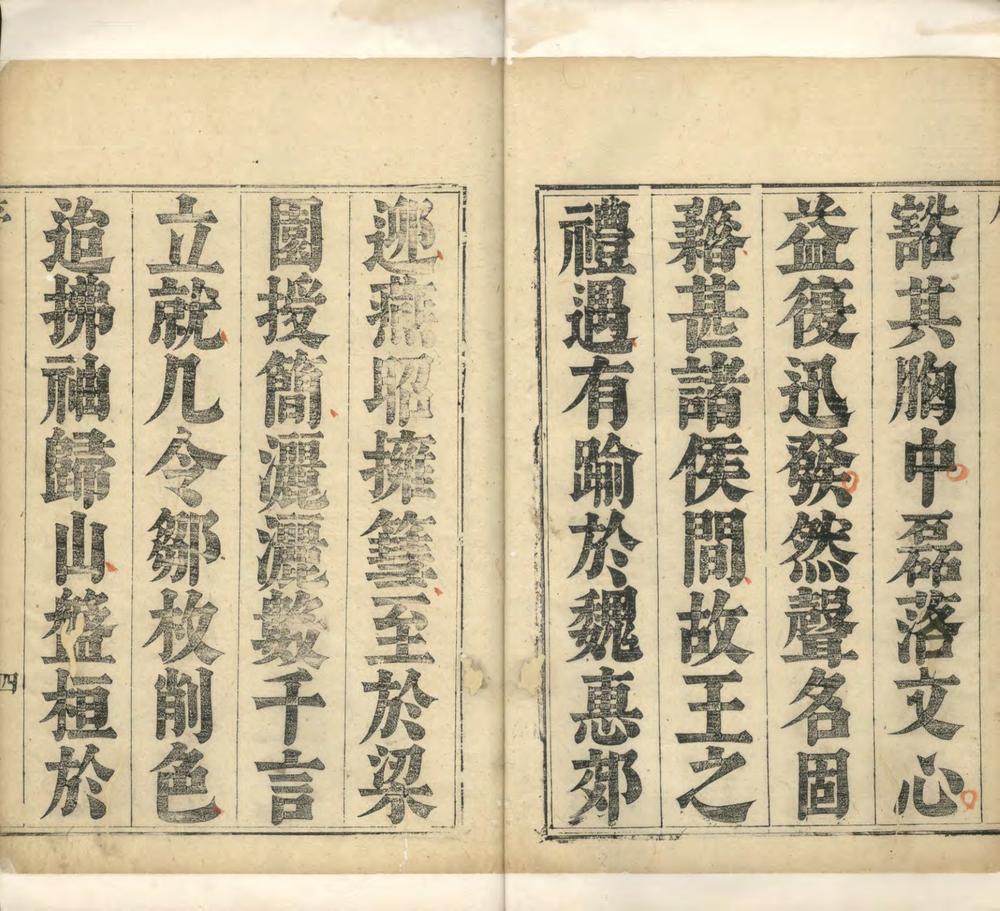 豁其胸中磊落文心
益復迅發然聲名固
藉甚諸侯間故王之
禮遇有踰於魏惠郊
迎燕昭擁篲至於梁
園授簡灑灑數千言
立就几令鄒枚削色
迨拂袖歸山盤桓於
四